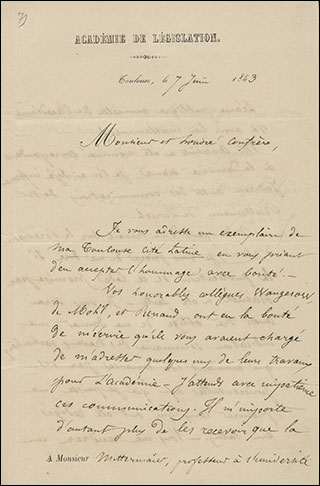 ACADÉMIE DE LÉGISLATION.
Toulouse, le 7 Juin 1863
Monsieur et honoré confrère,
Je vous adresse un exemplaire de
ma Toulouse Cité Latine, en vous priant
d'en accepter l'hommage avec bonté. —
Vos honorables collègues Wangerow,
de Mohl, et Renaud, ont eu la bonté
de m'écrire qu'ils vous avaient chargé
de m'adresser quelques uns de leurs travaux
pour l'Académie — J'attends avec impatience
ces communications. Il m'importe
d'autant plus de les recevoir que la
A Monsieur Mittermaier, professeur à l'université